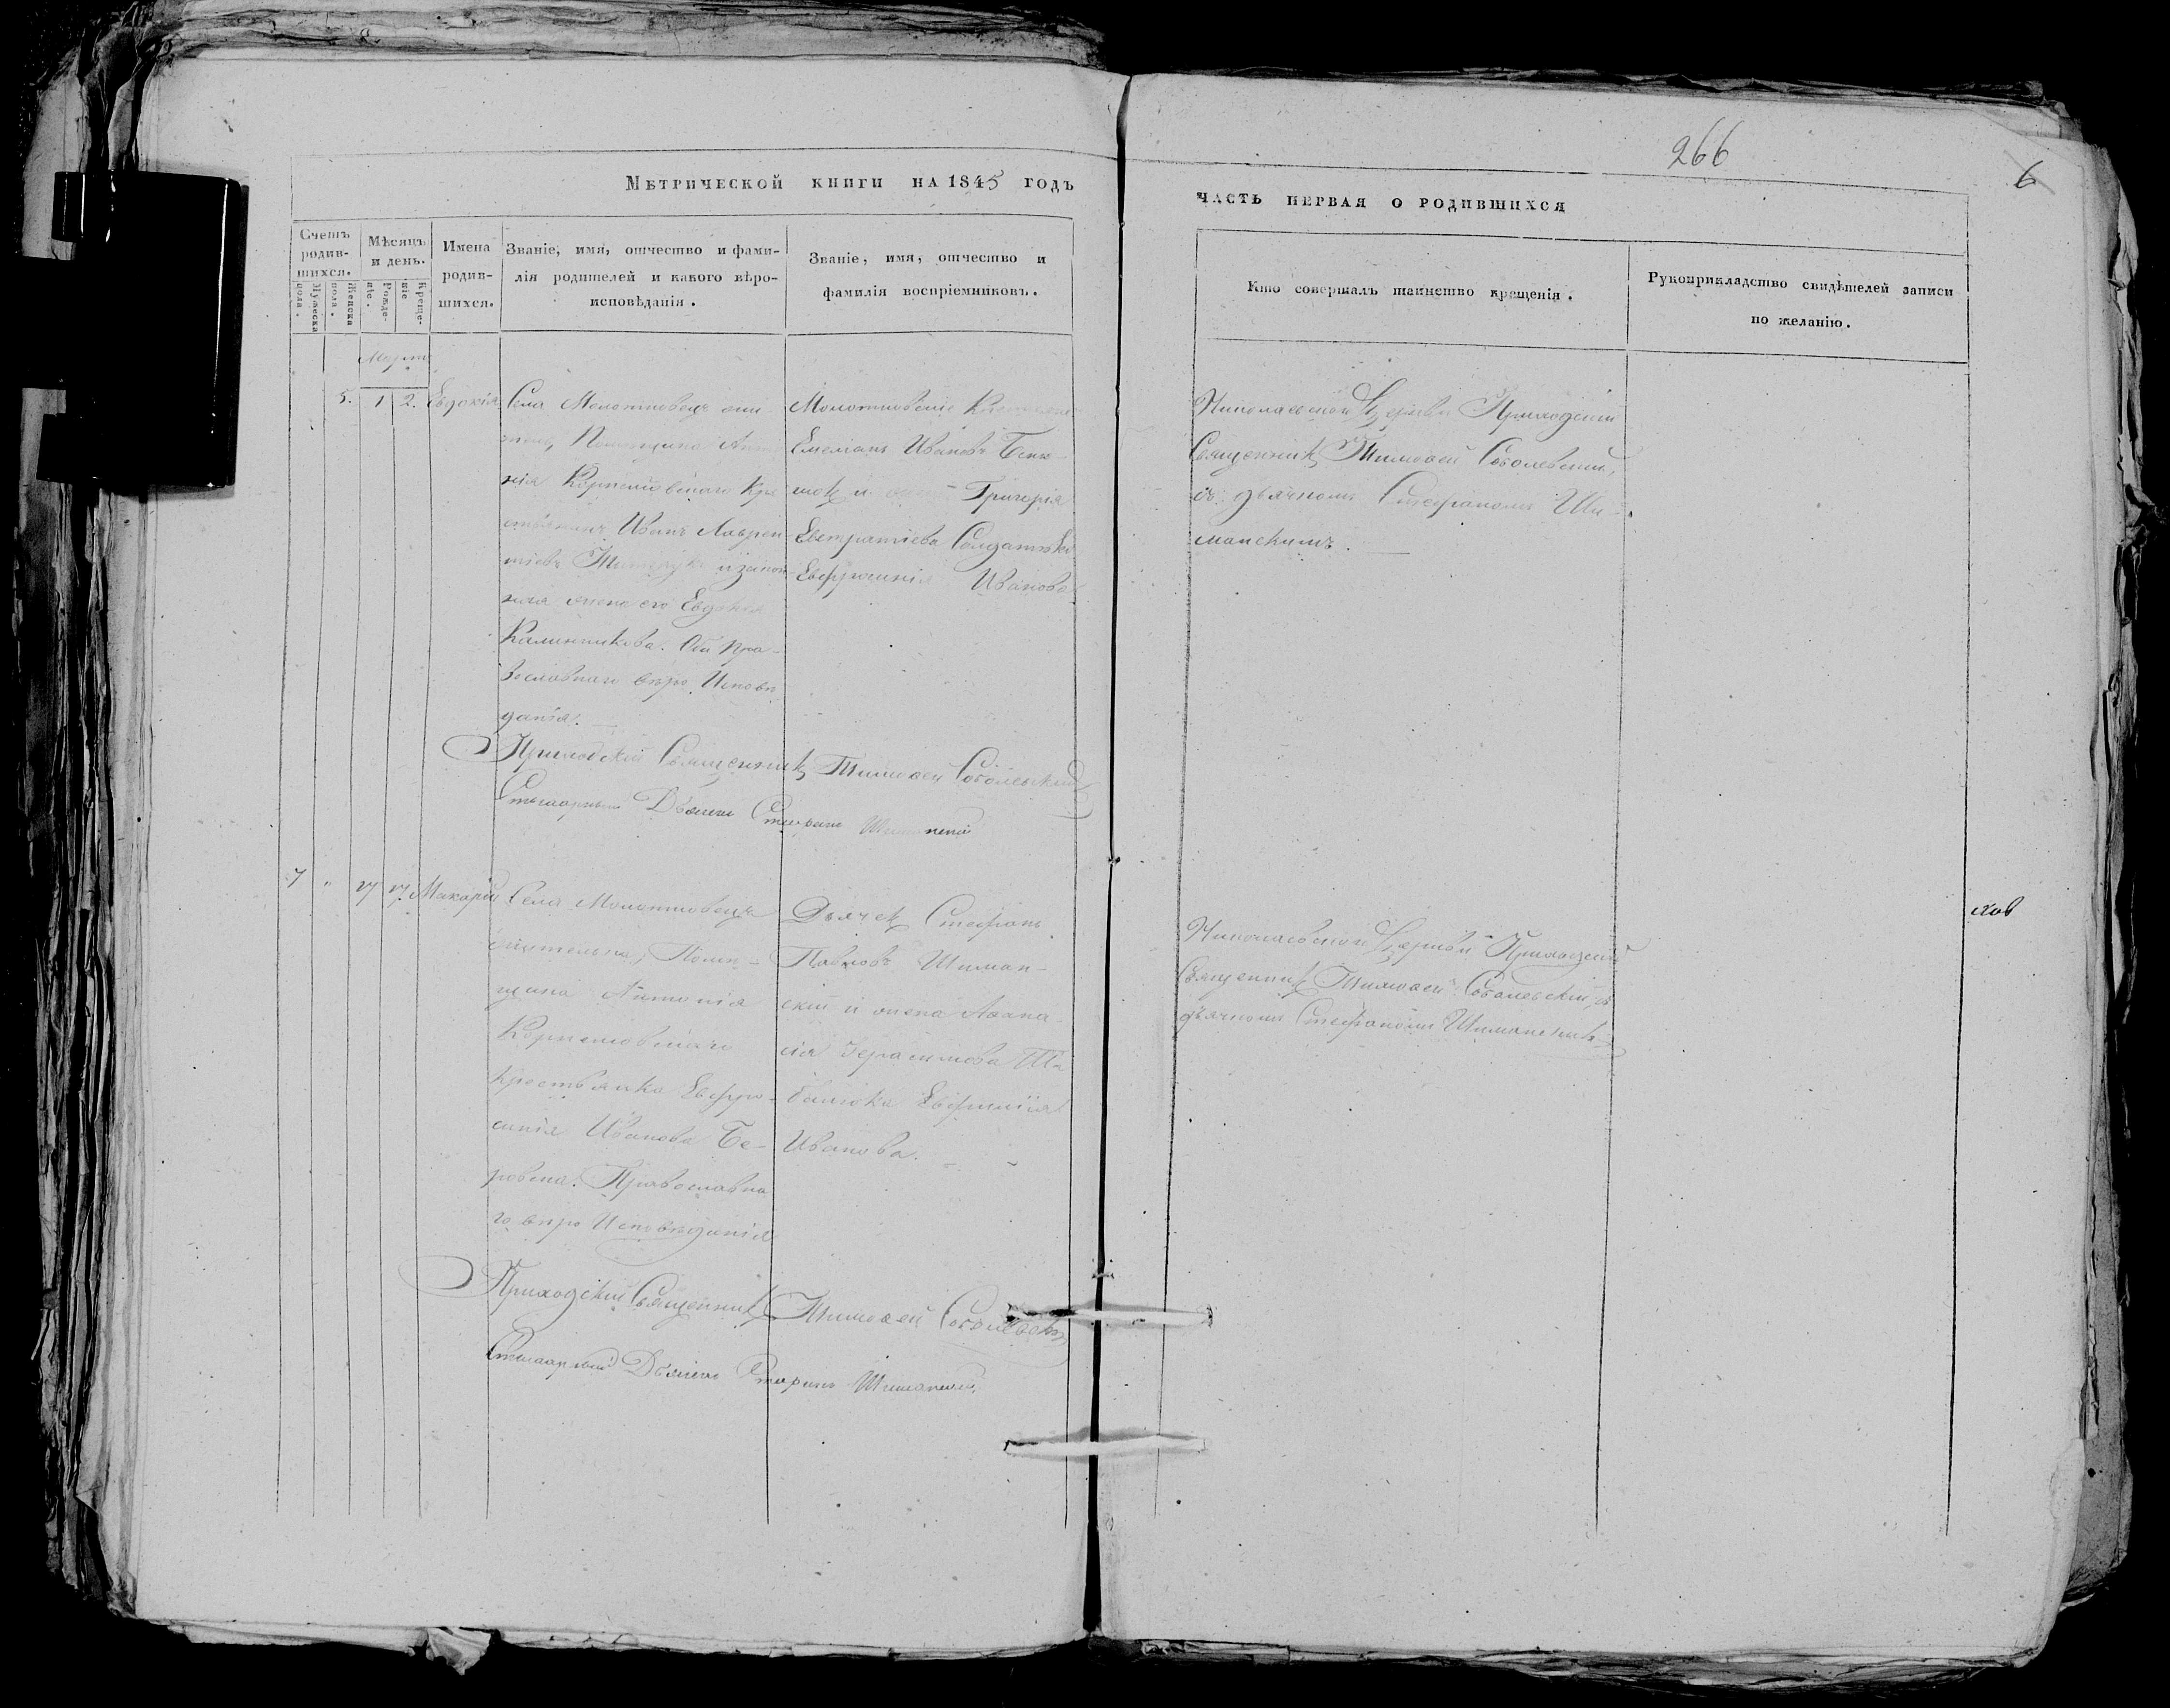 266
6
Метрической книги на 1845 годъ
часть первая о родившихся
Счетъ родив-шихся.
Мужеска пола.
Женска пола.
Мѣсяцъ и день.
Рожде-ніе.
Креще-ніе
Имена родив-шихся.
Званіе, имя, отчество и фами-
лія родителей и какого вѣро-
исповѣданія.
Званіе, имя, отчество и
фамилія воспріемниковъ.
Кто совершалъ таинство крещенія.
Рукоприкладство свидѣтелей записи
по желанію.
Мартъ
5. 1 2. Евдокія
Села Молотковецъ
Помѣщика Анто
нія Корженіовскаго Кре
стьянинъ Иванъ Лаврен
тіевъ и закон
ная жена его Евдокія
Калинникова. Оба пра-
вославнаго вѣро Исповѣ
данія.
Молотковскіе
Емеліанъ Иванов
и Григорія
Евстратіева Солдатка
Евфросинія Иванова
Николаевской Церкви Приходскій
Священникъ Тимофей Соболевскій,
съ дьячкомъ Стефаномъ Ши-
манскимъ.
Приходскій Священникъ Тимофей Соболевскій
Дьячекъ Стефанъ Шиманскій
7 " 17 17. Макарій
Села Молотковецъ
жительница, Помѣ-
щика Антонія
Корженіовскаго
Крестьянка Евфро-
синія Иванова
Православна
го вѣро Исповѣданія
Дьячекъ Стефанъ
Павловъ Шиман-
скій и жена Афана
сія Герасимова
Евфимія
Иванова.
Николаевской Церкви Приходскій
Священникъ Тимофей Соболевскій, съ
дьячкомъ Стефаномъ Шиманскимъ
Приходскій Священникъ Тимофей Соболевскій
Дьячекъ Стефанъ Шиманскій